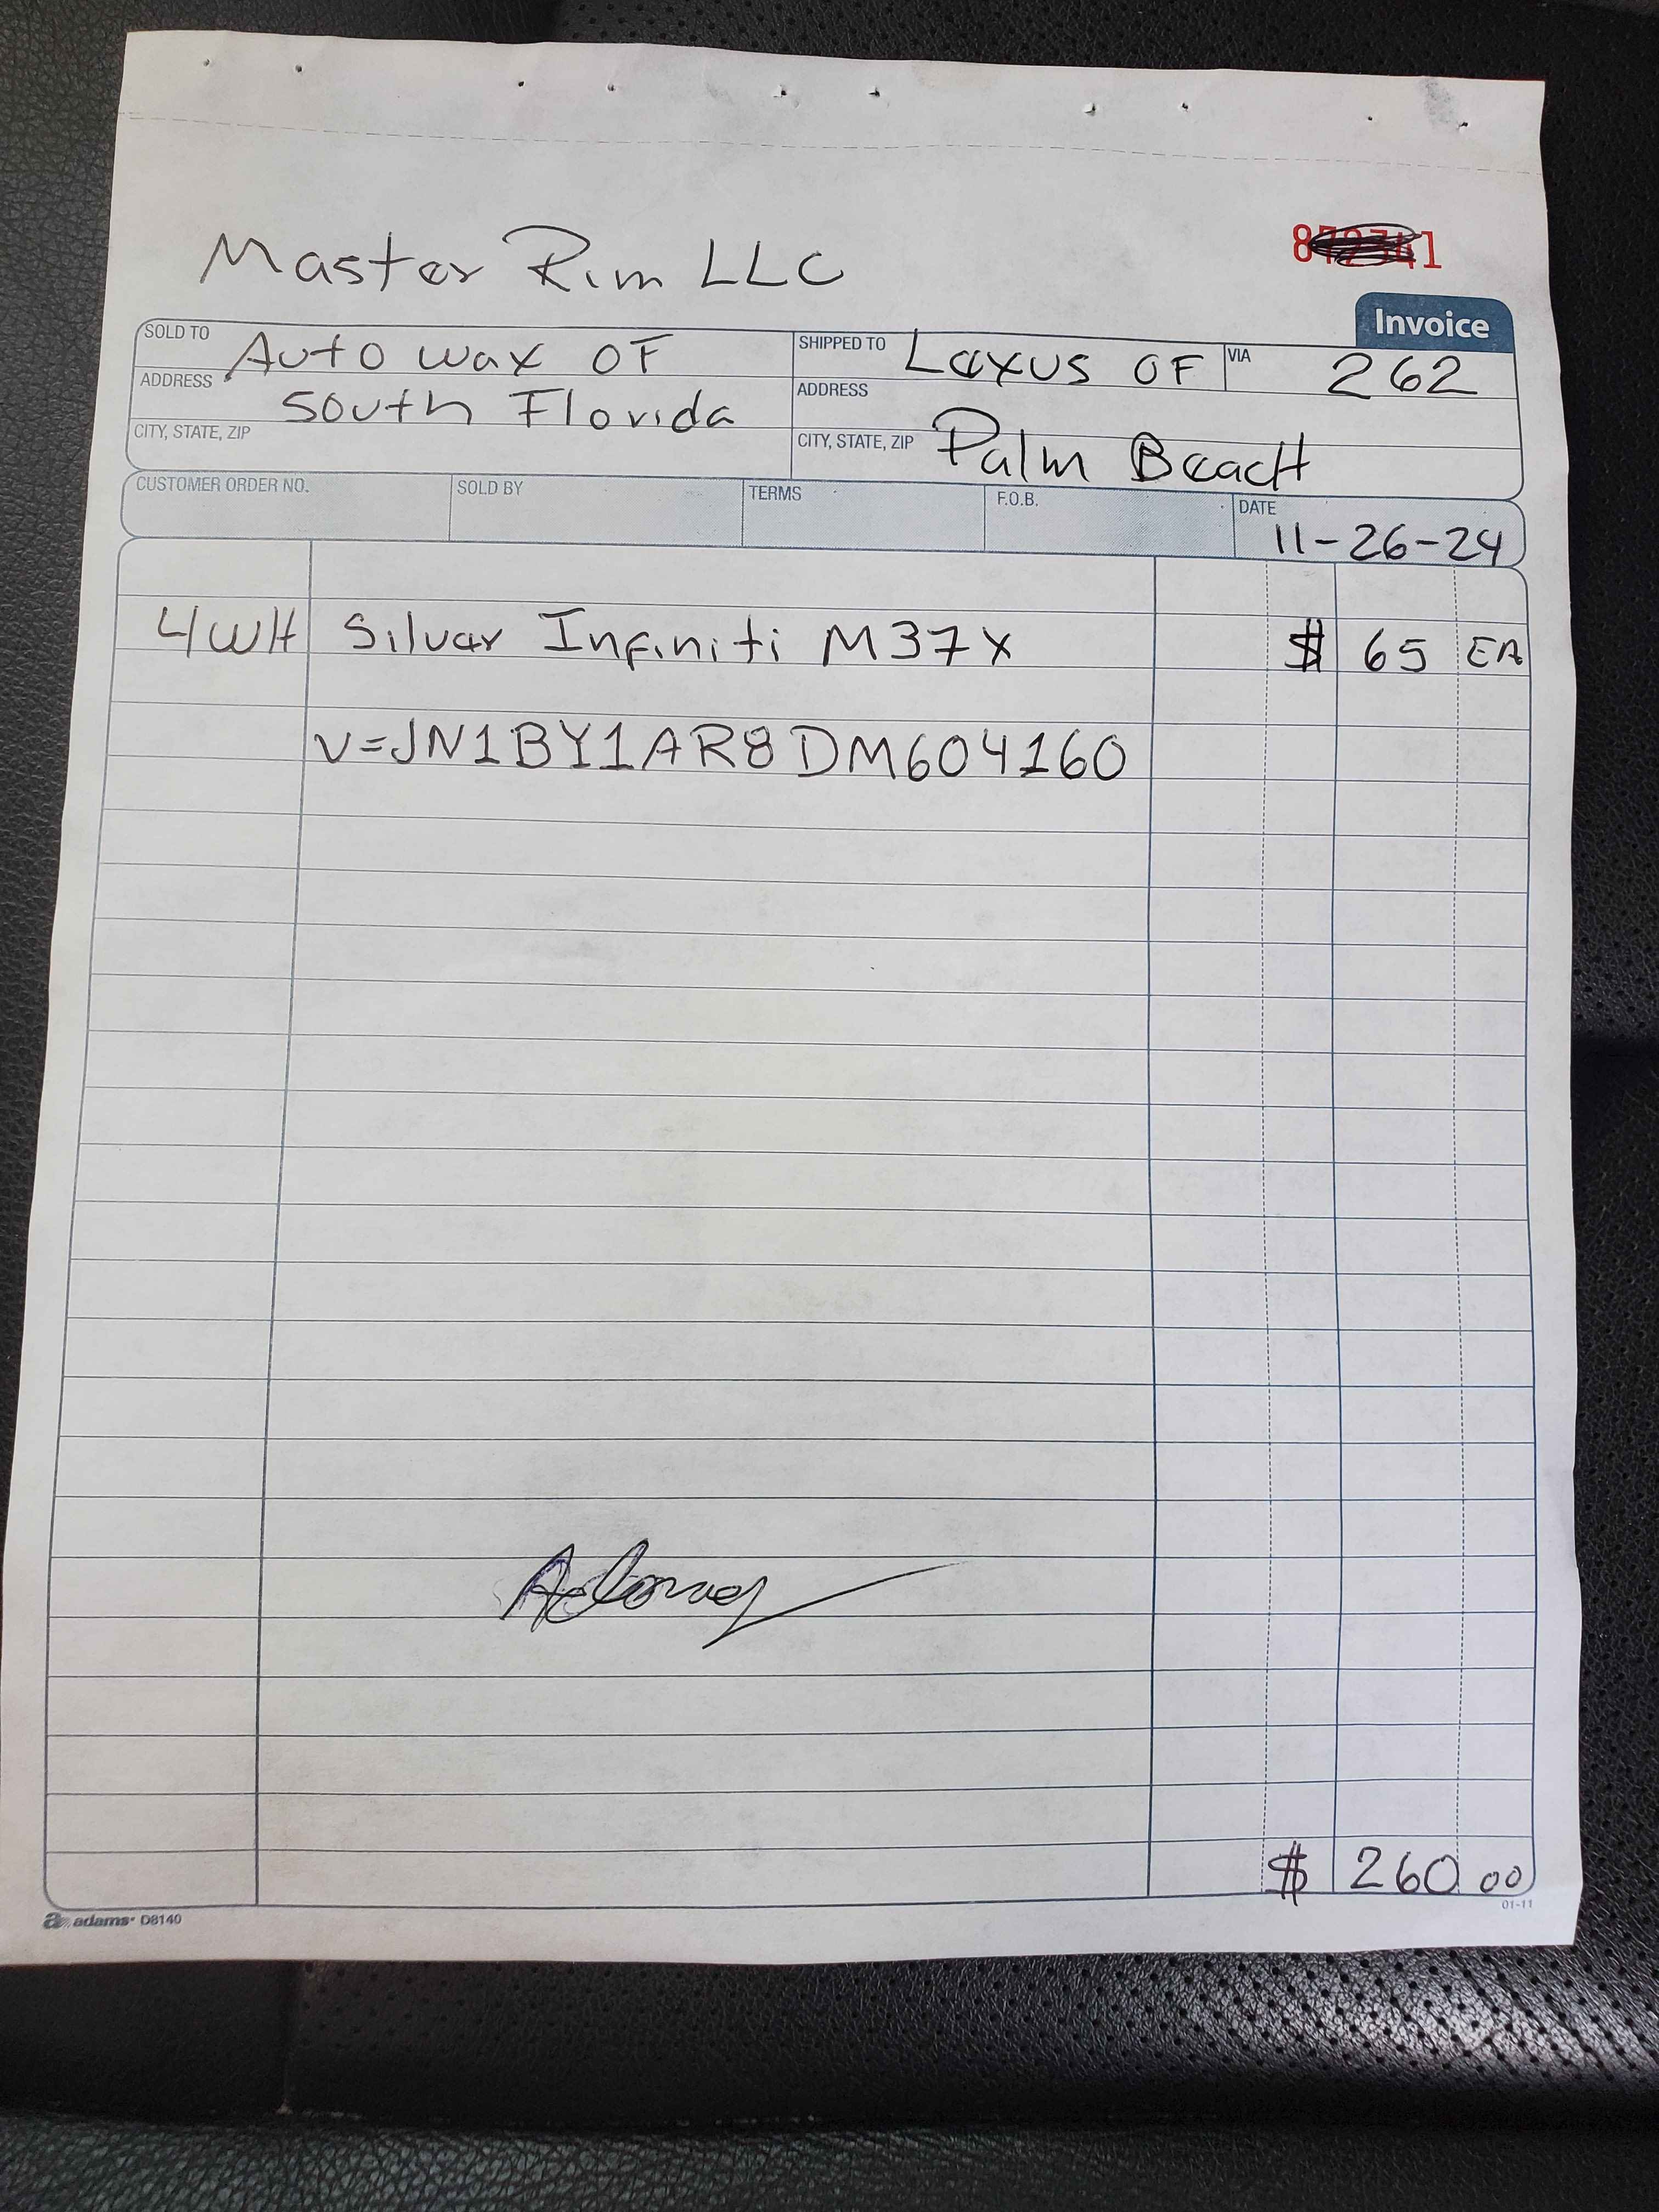 Master Rim LLC
Invoice
SOLD TO Auto wax OF
ADDRESS South Florida
CITY, STATE, ZIP
SHIPPED TO Lexus OF
VIA 262
ADDRESS
CITY, STATE, ZIP Palm BeacH
CUSTOMER ORDER NO. SOLD BY TERMS F.O.B. DATE 11-26-24
4WH Silver Infiniti M37X $ 65 EA
V=JN1BY1AR8DM604160
$ 260 00
adams D8140
01-11